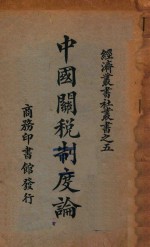 經濟叢書社叢書之五
中國關稅制度論
商務印書館發行